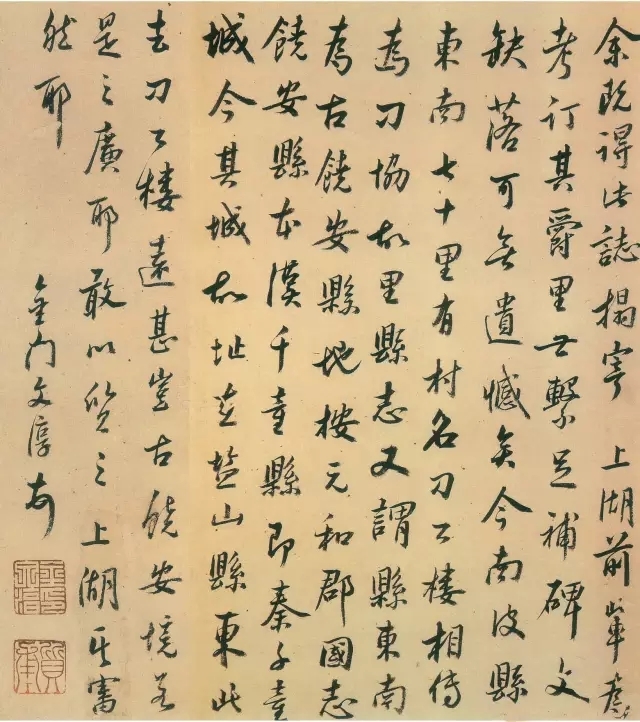 余既得此誌搨寄 上湖前輩
考訂其爵里世繫足補碑文
缺落可無遺憾矣今南皮縣
東南七十里有村名刁公樓相傳
為刁協故里縣志又謂縣東南
為古饒安縣地按元和郡國志
饒安縣本漢千童縣即秦千童
城今其城故址在鹽山縣東
去刁公樓遠甚豈古饒安境若
是之廣耶敢以質之上湖其審
然耶
金門文淳